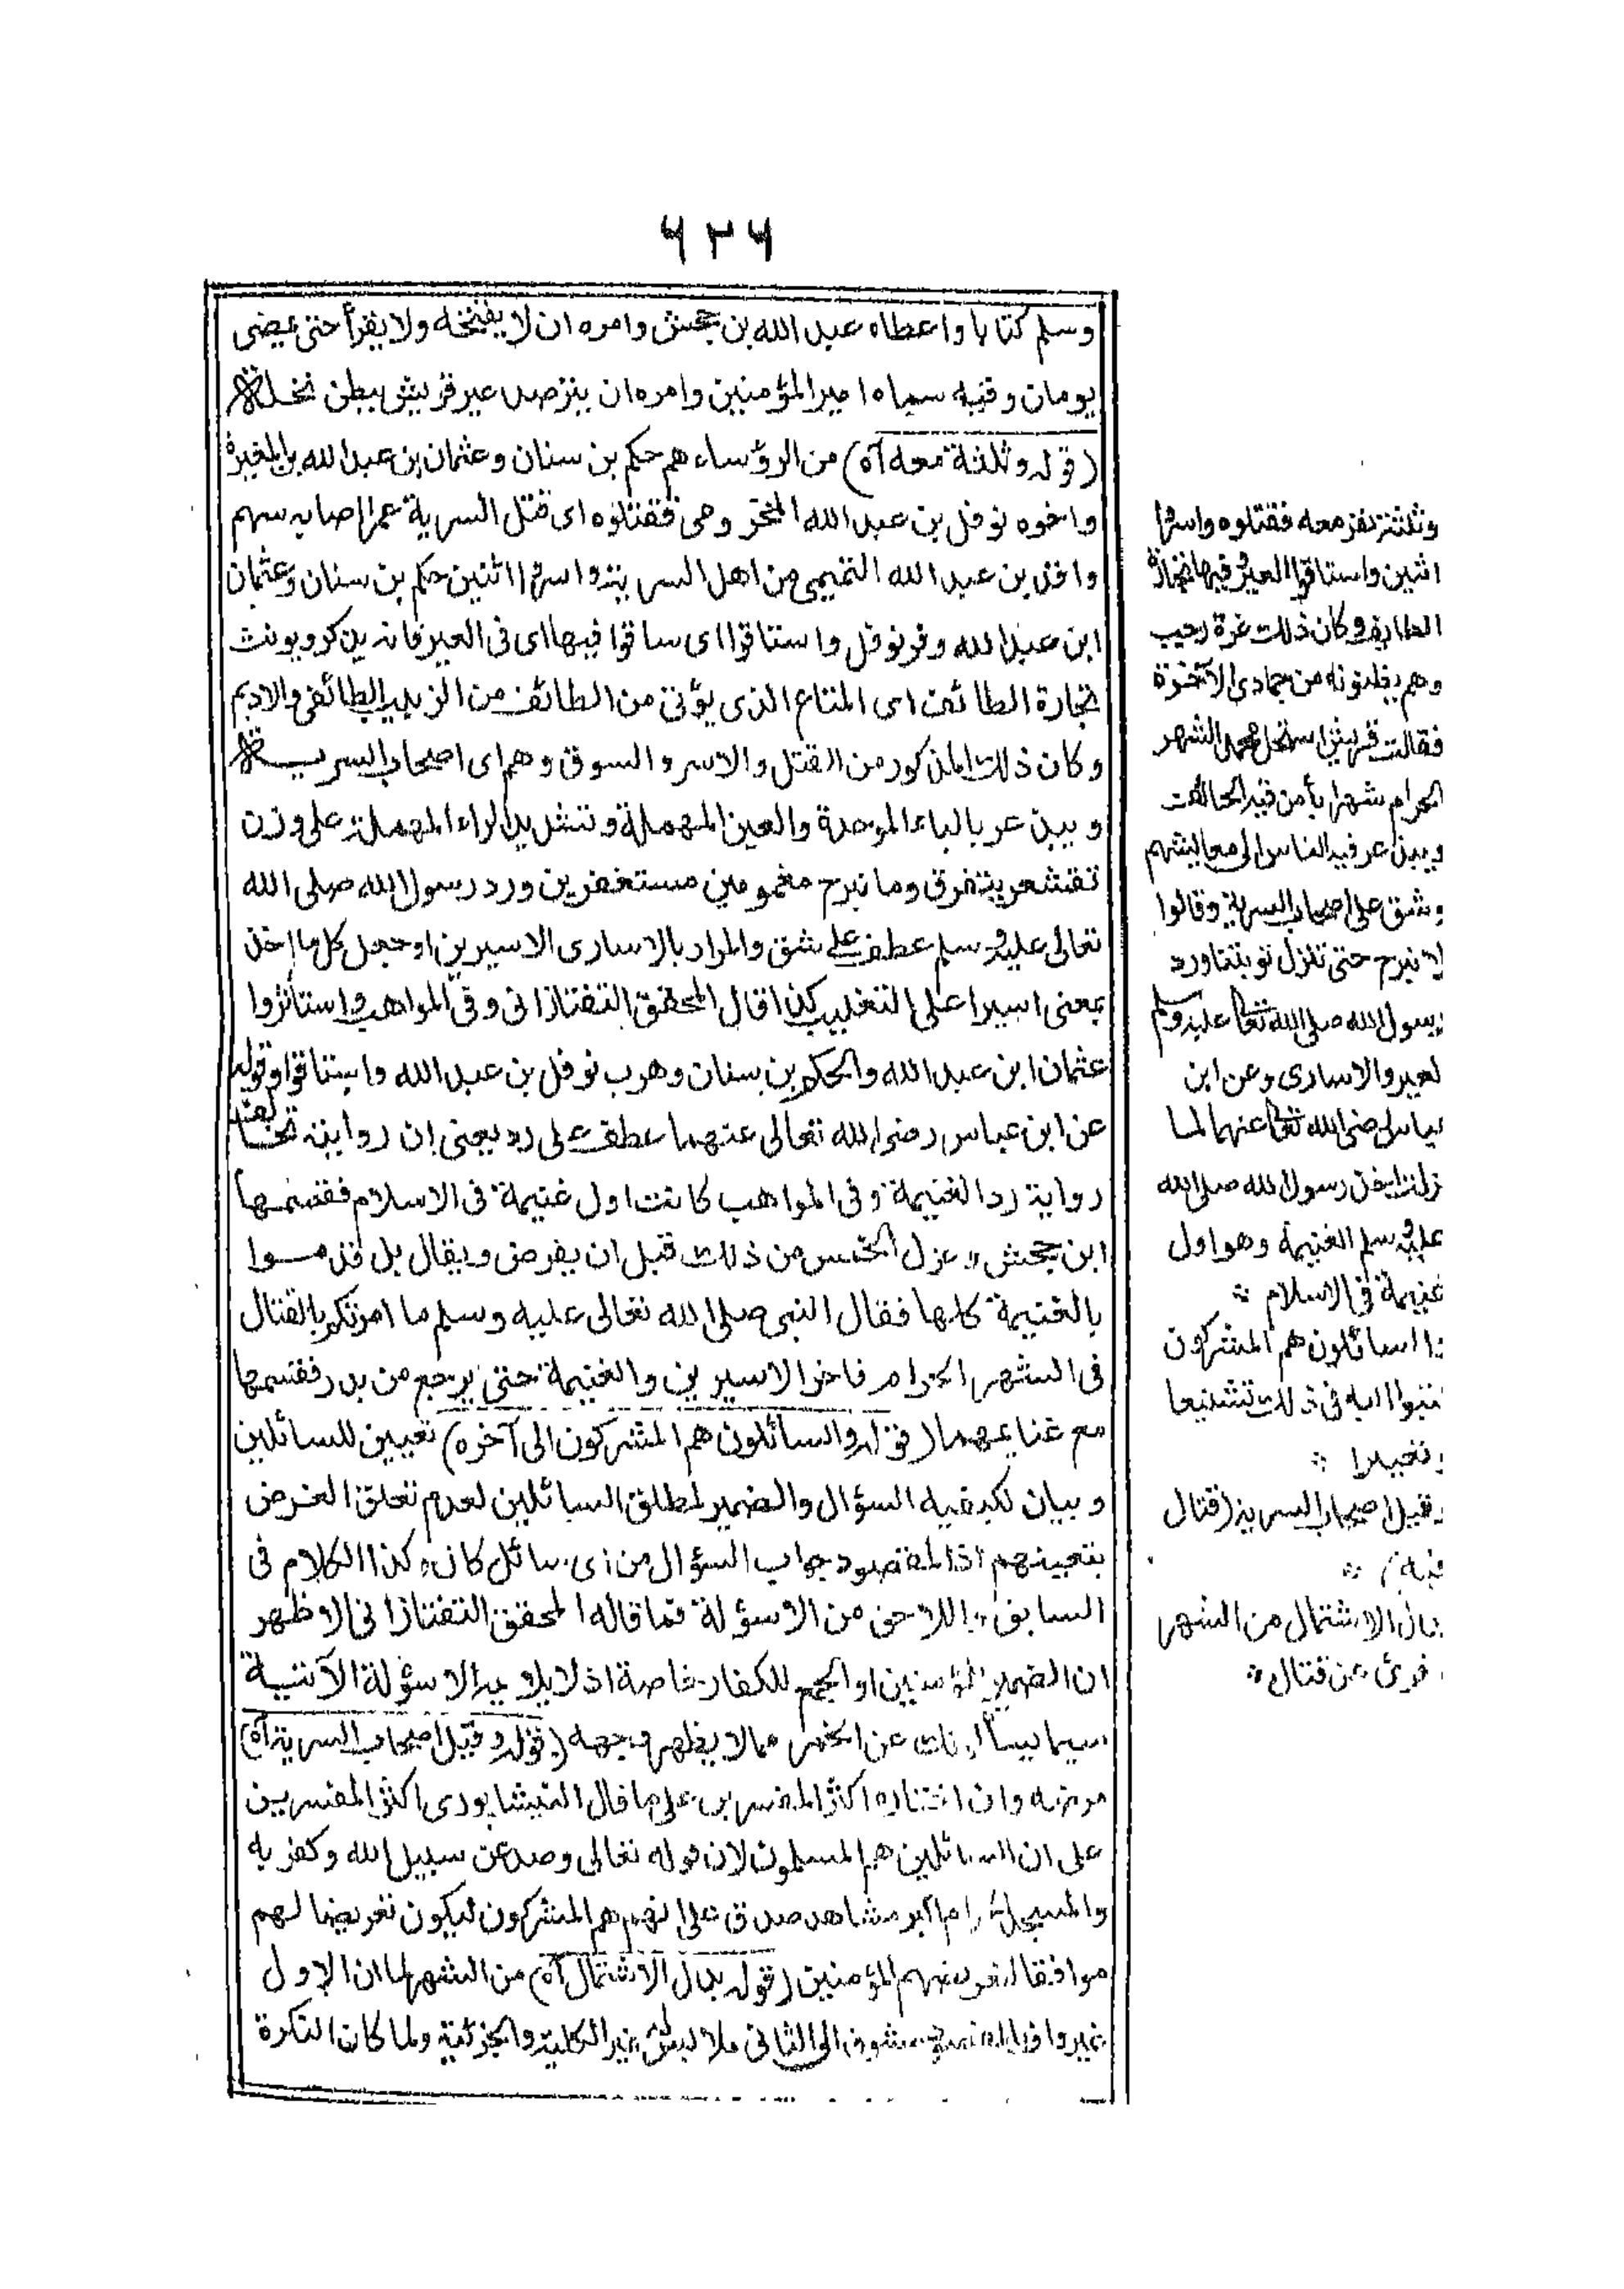 ٦٢٦
وسلم كتابا واعطاه عبد الله بن جحش وامره ان لا يفتحه ولا يقرأ حتى يمضى
يومان وفيه سماه امير المؤمنين وامره ان يترصد عير قريش ببطن نخلة
(قوله وثلثة معه آه) من الرؤساء هم حكم بن سنان وعثمان بن عبد الله بن المغيرة
واخوه نوفل بن عبد الله المخزومى فقتلوه اى قتل السرية عمرا اصابه سهم
واقد بن عبد الله التميمى من اهل السرية واسروا اثنين حكم بن سنان وعثمان
ابن عبد الله وفر نوفل واستاقوا اى ساقوا فيها اى فى العير فانه يذكر ويؤنث
تجارة الطائف اى المتاع الذى يؤتى من الطائف من الزبيب الطائفى والاديم
وكان ذلك المذكور من القتل والاسر والسوق وهم اى اصحاب السرية
ويبذعر بالباء الموحدة والعين المهملة وتشديد الراء المهملة على وزن
تقشعر يتفرق وما نبرح مغمومين مستغفرين ورد رسول الله صلى الله
تعالى عليه وسلم عطف على شق والمراد بالاسارى الاسيرين او جعل كل ما اخذ
بمعنى اسيرا على التغليب كذا قال المحقق التفتازانى وفى المواهب واستأثروا
عثمان ابن عبد الله والحكم بن سنان وهرب نوفل بن عبد الله واستاقوا وقوله
عن ابن عباس رضى الله تعالى عنهما عطف على رد يعنى ان روايته تخالف
رواية رد الغنيمة وفى المواهب كانت اول غنيمة فى الاسلام فقسمها
ابن جحش وعزل الخمس من ذلك قبل ان يفرض ويقال بل قدموا
بالغنيمة كلها فقال النبى صلى الله تعالى عليه وسلم ما امرتكم بالقتال
فى الشهر الحرام فاخر الاسيرين والغنيمة حتى يرجع من بدر فقسمها
مع غنايمها (قوله والسائلون هم المشركون الى آخره) تعيين للسائلين
وبيان لكيفية السؤال والضمير لمطلق السائلين لعدم تعلق الغرض
بتعيينهم اذ المقصود جواب السؤال من اى سائل كان وكذا الكلام فى
السابق واللاحق من الاسؤلة فما قاله المحقق التفتازانى الاظهر
ان الضمير للمؤمنين او الجمع للكفار خاصة اذ لا يلايم الاسؤلة الآتية
سيما يسألونك عن الخمر مما لا يظهر وجهه (قوله وقيل اصحاب السرية آه)
مرضه وان اختاره اكثر المفسرين على ما قال النيشابورى اكثر المفسرين
على ان السائلين هم المسلمون لان قوله تعالى وصد عن سبيل الله وكفر به
والمسجد الحرام اكبر شاهد صدق على انهم هم المشركون ليكون تعريضا لهم
موافقا لتعريضهم المؤمنين (قوله بدل الاشتمال آه) من الشهر لما ان الاول
غير واف بالمقصود مشوق الى الثانى ملابس بغير الكلية والجزئية ولما كان النكرة
وثلثة نفر معه فقتلوه واسروا
اثنين واستاقوا العير وفيها تجارة
الطايف وكان ذلك غرة رجب
وهم يظنونه من جمادى الآخرة
فقالت قريش استحل محمد الشهر
الحرام شهرا يأمن فيه الخائف
ويبذعر فيه الناس الى معايشهم
وشق على اصحاب السرية وقالوا
لا نبرح حتى تنزل توبتنا ورد
رسول الله صلى الله تعالى عليه وسلم
لعير والاسارى وعن ابن
عباس رضى الله تعالى عنهما لما
نزلت اخذ رسول الله صلى الله
عليه وسلم الغنيمة وهو اول
غنيمة فى الاسلام
والسائلون هم المشركون
كتبوا اليه فى ذلك تشنيعا
وتعييرا
وقيل اصحاب السرية (قتال
فيه)
بدل الاشتمال من الشهر
وقرئ عن قتال